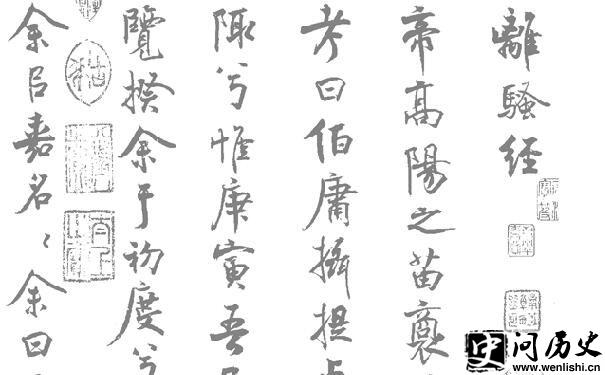 離騷經
帝高陽之苗裔
考曰伯庸攝提
陬兮惟庚寅吾
覽揆余于初度兮
余㠯嘉名〻余曰
史 问历史
www.wenlishi.cn